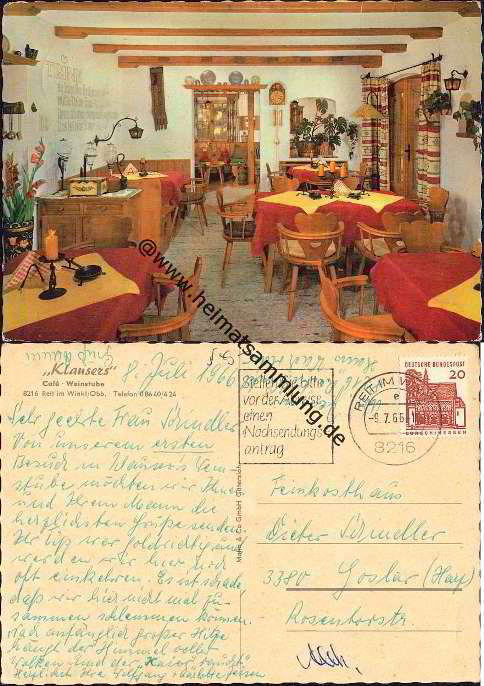 TRINK
© www.heimatsammlung.de
„Klausers"
Café · Weinstube
8216 Reit im Winkl/Obb. Telefon 0 86 40/4 24
8. Juli 1966
Stellen Sie bitte
vor der Abreise
einen
Nachsendungs-
antrag
REIT IM WINKL
e
-9.7.66
8216
DEUTSCHE BUNDESPOST
20
LORSCH/HESSEN
Sehr geehrte Frau Schindler
Von unserem ersten
Besuch in Klausers Wein-
stube möchten wir Ihnen
und Ihrem Manne die
herzlichsten Grüße senden.
Ihr Tip war goldrichtig und
werden wir hier noch
oft einkehren. Es ist schade,
daß wir hier nicht mal zu-
sammen schlemmen können.
Nach anfänglich großer Hitze
hängt der Himmel voller
Wolken und der Kaiser
Herzlichst Ihre Wolfgang
Feinkosthaus
Dieter Schindler
3380 Goslar (Harz)
Rosentorstr.